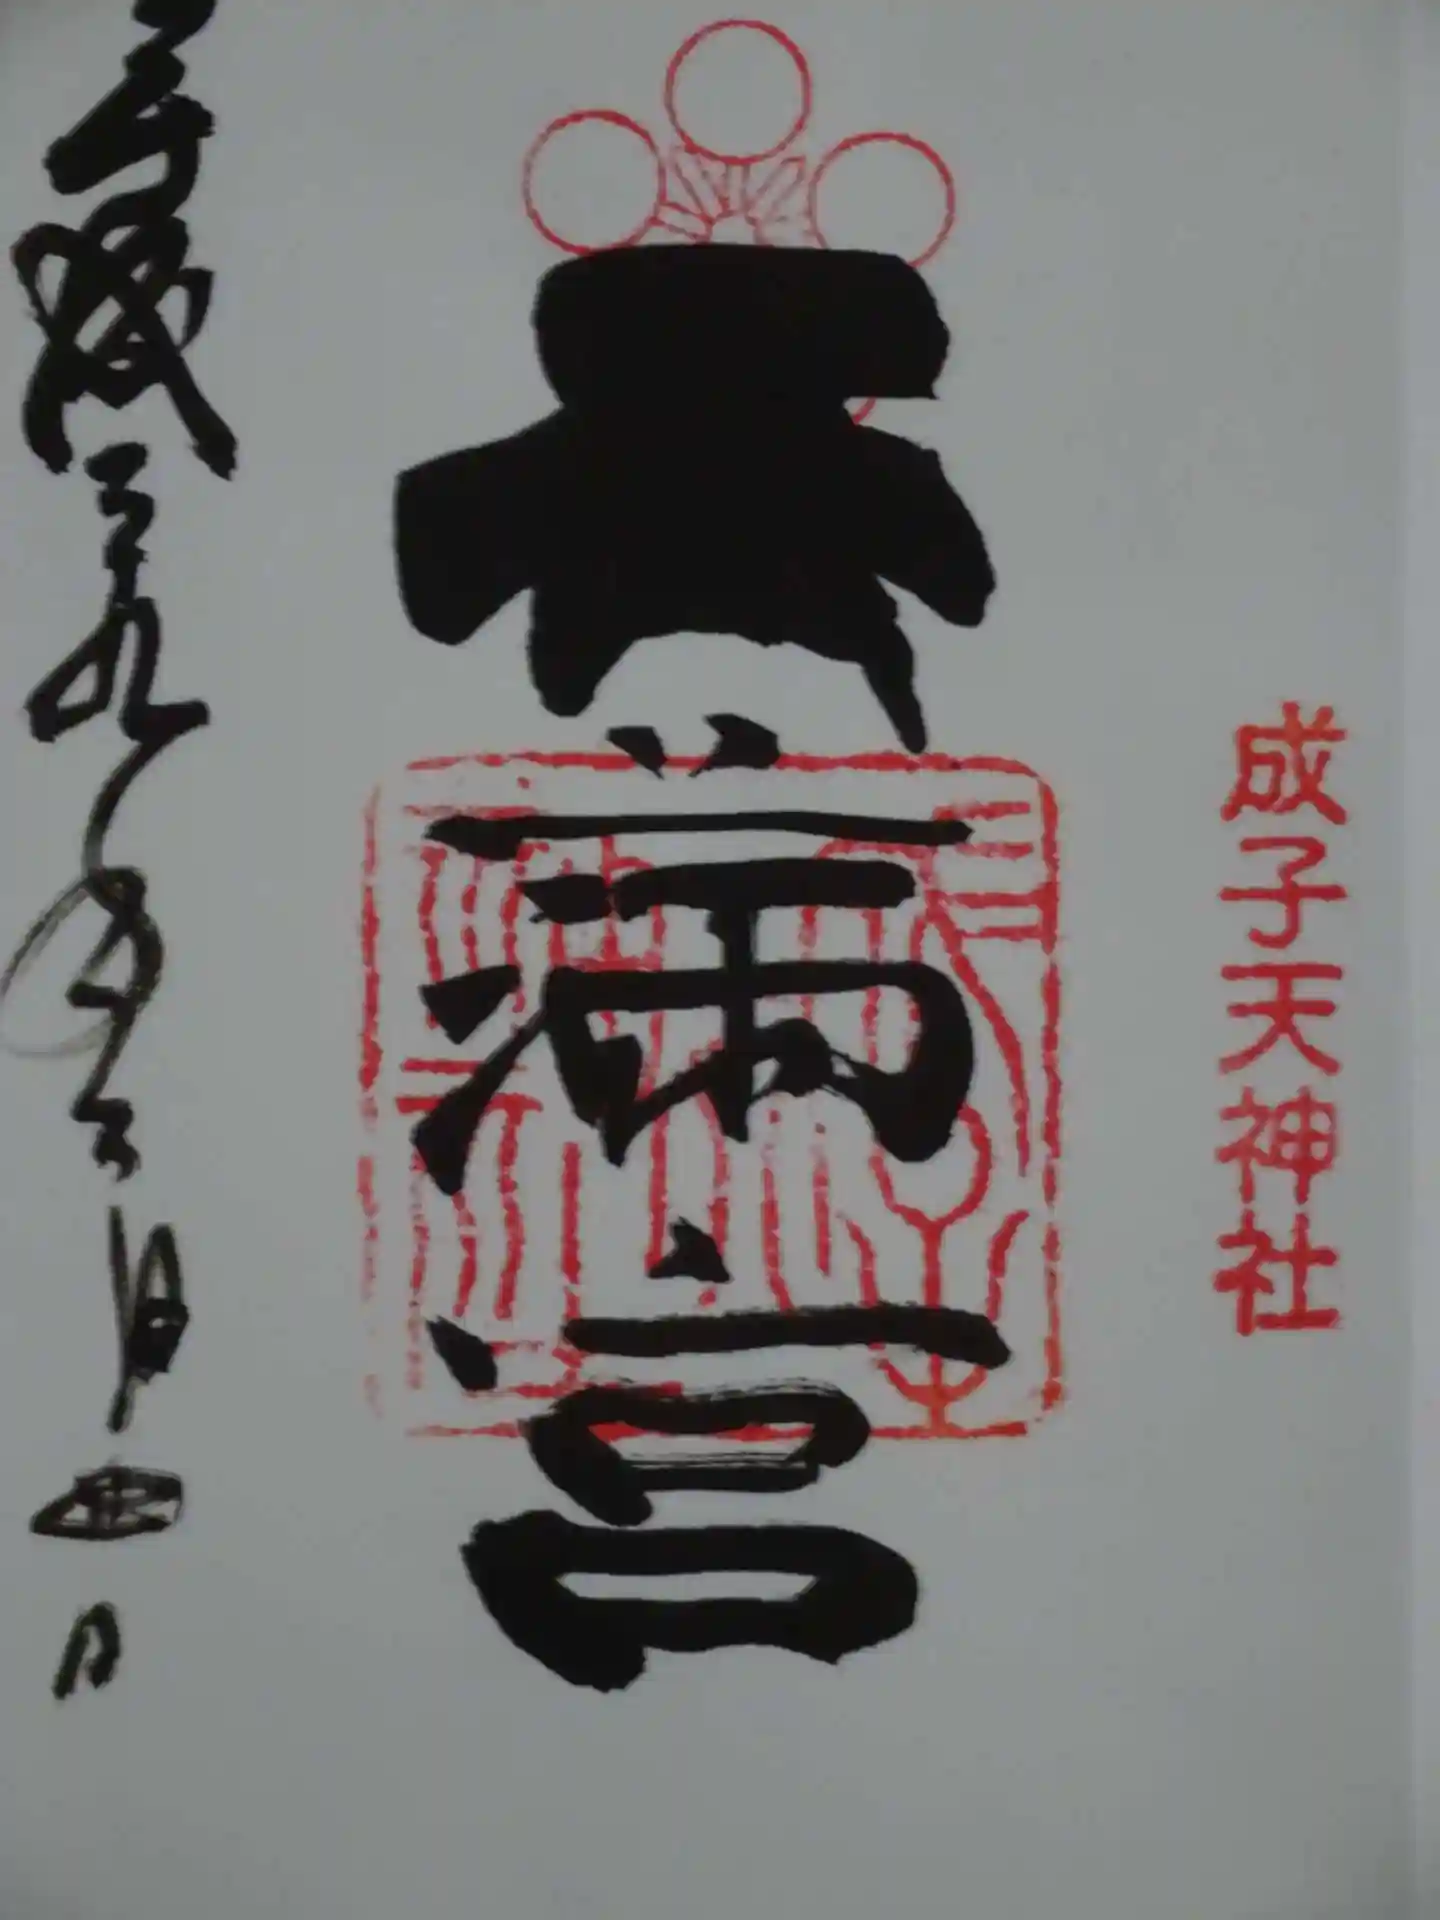 成子天神社
天満宮
平成二十九年三月四日